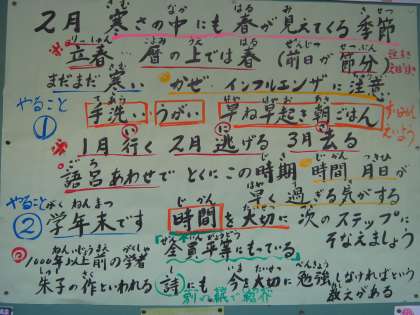 2月 寒さの中にも春が見えてくる季節
立春… 暦の上では春 (前日が節分
まだまだ寒い かぜ インフルエンザに注意
やること
① 手洗い うがい 早ね早起き朝ごはん
1月行く 2月逃げる 3月去る
語呂あわせで とくにこの時期 時間 月日が
早く過ぎる気がする
やること
② 学年末です 時間を大切に 次のステップに
そなえましょう
全員平等にもっている
1000年以上前の学者
朱子の作といわれる 詩にも 今を大切に勉強しなければという
教えがある
別の紙で紹介